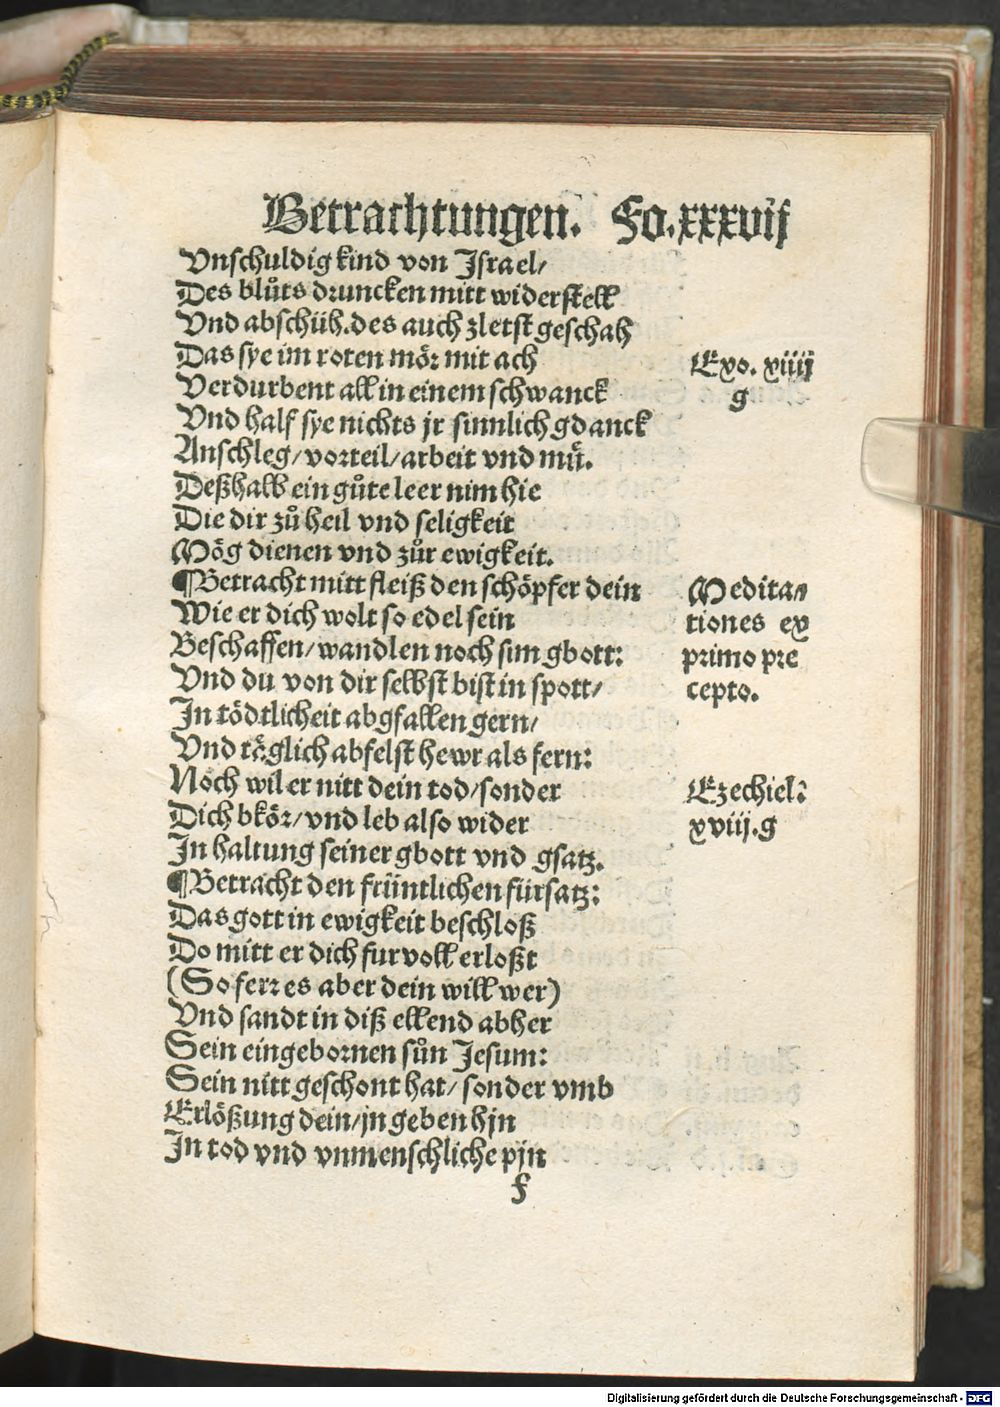 Betrachtungen. Fo.xxxvij
Vnschuldig kind von Israel/
Des blůts druncken mitt widerstell
Vnd abschüh.des auch zletst geschah
Das sye im roten mör mit ach
Exo. xiiij
Verdurbent all in einem schwanck
g
Vnd half sye nichts jr sinnlich gdanck
Anschleg/vorteil/arbeit vnd mü.
Deßhalb ein gůte leer nim hie
Die dir zů heil vnd seligkeit
Mög dienen vnd zůr ewigkeit.
¶Betracht mitt fleiß den schöpfer dein
Medita-
Wie er dich wolt so edel sein
tiones ex
Beschaffen/wandlen noch sim gbott:
primo pre
Vnd du von dir selbst bist in spott/
cepto.
In tödtlicheit abgfallen gern/
Vnd töglich abfelst hewr als fern:
Noch wil er nitt dein tod/sonder
Ezechiel:
Dich bkör/vnd leb also wider
xviij.g
In haltung seiner gbott vnd gsatz.
¶Betracht den früntlichen fürsatz:
Das gott in ewigkeit beschloß
Do mitt er dich fur voll erloßt
(So ferr es aber dein will wer)
Vnd sandt in diß ellend abher
Sein eingebornen sůn Jesum:
Sein nitt geschont hat/sonder vmb
Erlößung dein/jn geben hjn
In tod vnd vnmenschliche pjn
f
Digitalisierung gefördert durch die Deutsche Forschungsgemeinschaft - DFG